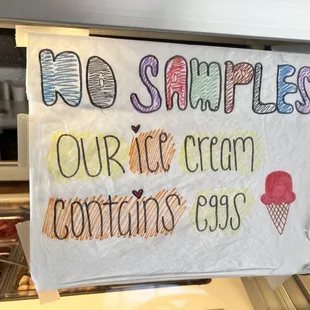 NO SAMPLES
OUR ice cream
contains eggs